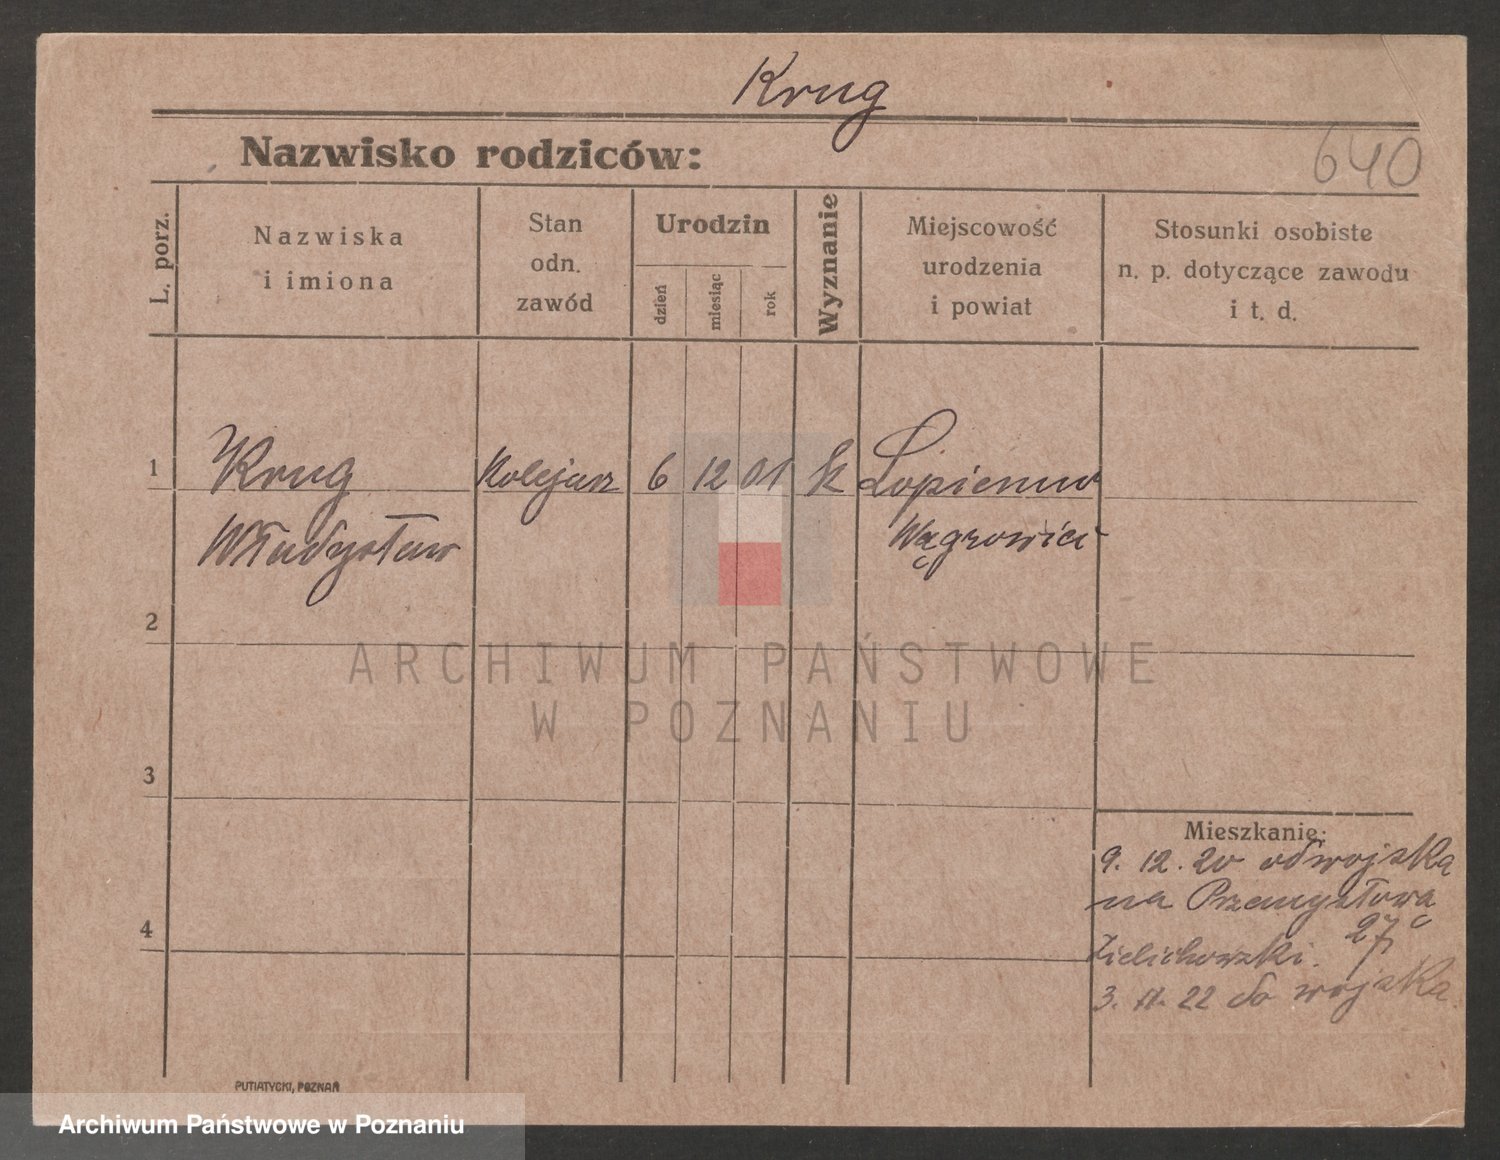 Krug
Nazwisko rodziców:
640
L. porz.
Nazwiska
i imiona
Stan
odn.
zawód
Urodzin
dzień
miesiąc
rok
Wyznanie
Miejscowość
urodzenia
i powiat
Stosunki osobiste
n. p. dotyczące zawodu
i t. d.
1
Krug
Kolejarz
6
12
01
k
Łopienno
Władysław
Wągrowiec
2
3
4
Mieszkanie:
9. 12. 20 od wojska
na Przemysłową
27
Zielichowski.
3. 11. 22 do wojska.
ARCHIWUM PAŃSTWOWE
W POZNANIU
PUTIATYCKI, POZNAŃ
Archiwum Państwowe w Poznaniu